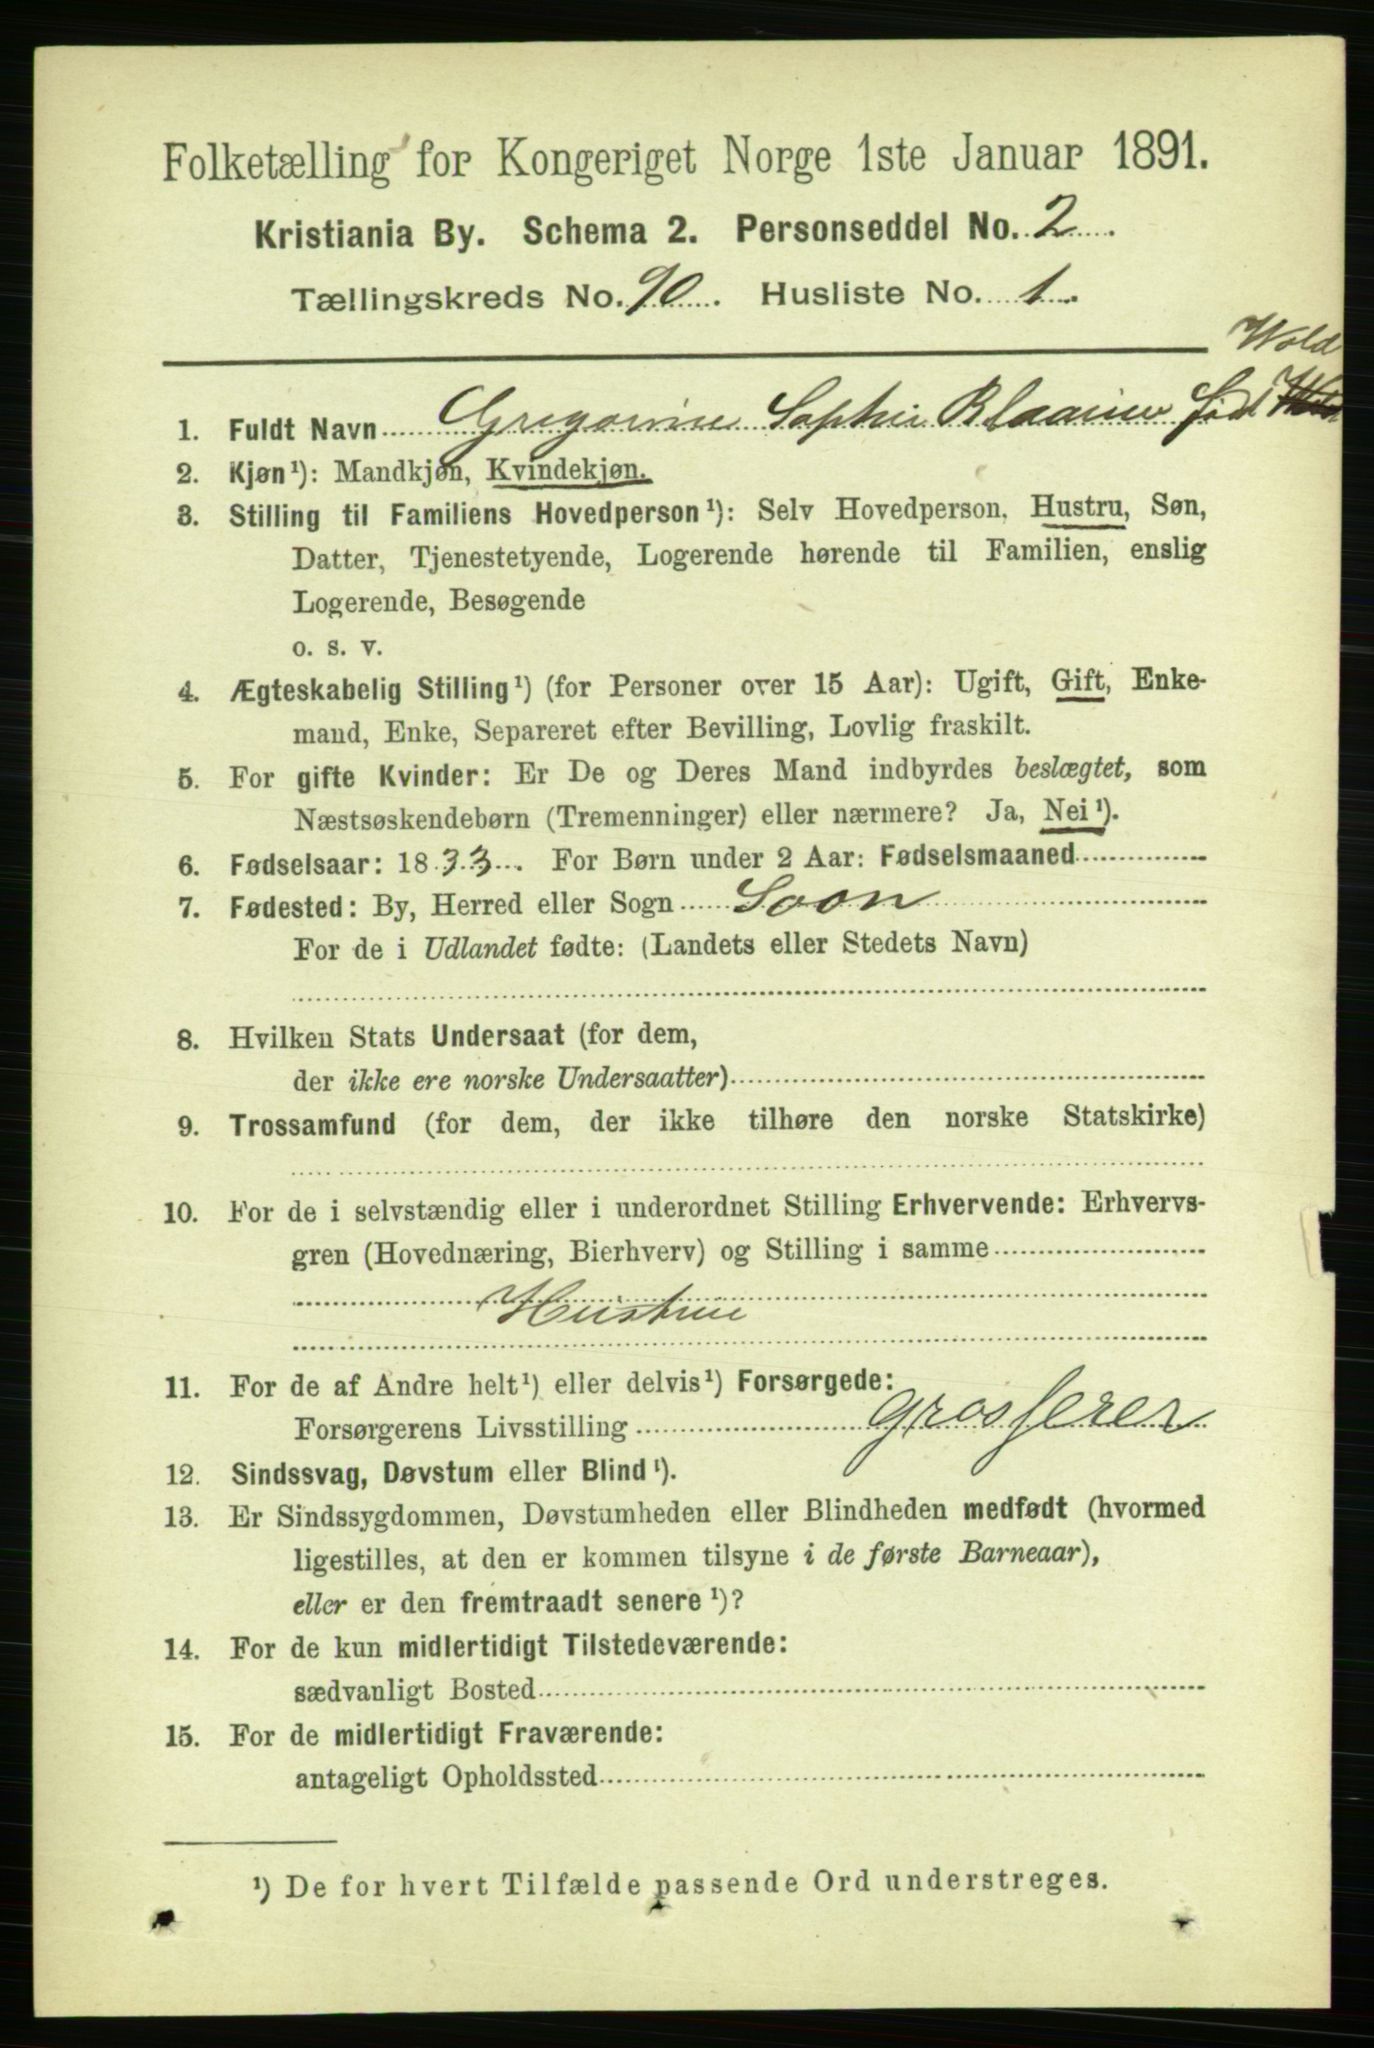 Folketælling for Kongeriget Norge 1ste Januar 1891.
Kristiania By. Schema 2. Personseddel No. 2
Tællingskreds No. 90. Husliste No. 1.
Wold
1. Fuldt Navn Gregorine Sophie Blaauw fød
2. Kjøn¹): Mandkjøn, Kvindekjøn.
3. Stilling til Familiens Hovedperson¹): Selv Hovedperson, Hustru, Søn,
Datter, Tjenestetyende, Logerende hørende til Familien, enslig
Logerende, Besøgende
o. s. v.
4. Ægteskabelig Stilling¹) (for Personer over 15 Aar): Ugift, Gift, Enke-
mand, Enke, Separeret efter Bevilling, Lovlig fraskilt.
5. For gifte Kvinder: Er De og Deres Mand indbyrdes beslægtet, som
Næstsøskendebørn (Tremenninger) eller nærmere? Ja, Nei¹).
6. Fødselsaar: 1833. For Børn under 2 Aar: Fødselsmaaned
7. Fødested: By, Herred eller Sogn Soon
For de i Udlandet fødte: (Landets eller Stedets Navn)
8. Hvilken Stats Undersaat (for dem,
der ikke ere norske Undersaatter)
9. Trossamfund (for dem, der ikke tilhøre den norske Statskirke)
10. For de i selvstændig eller i underordnet Stilling Erhvervende: Erhvervs-
gren (Hovednæring, Bierhverv) og Stilling i samme
Hustrue
11. For de af Andre helt¹) eller delvis¹) Forsørgede:
Forsørgerens Livsstilling Grosserer
12. Sindssvag, Døvstum eller Blind¹).
13. Er Sindssygdommen, Døvstumheden eller Blindheden medfødt (hvormed
ligestilles, at den er kommen tilsyne i de første Barneaar),
eller er den fremtraadt senere¹)?
14. For de kun midlertidigt Tilstedeværende:
sædvanligt Bosted
15. For de midlertidigt Fraværende:
antageligt Opholdssted
¹) De for hvert Tilfælde passende Ord understreges.